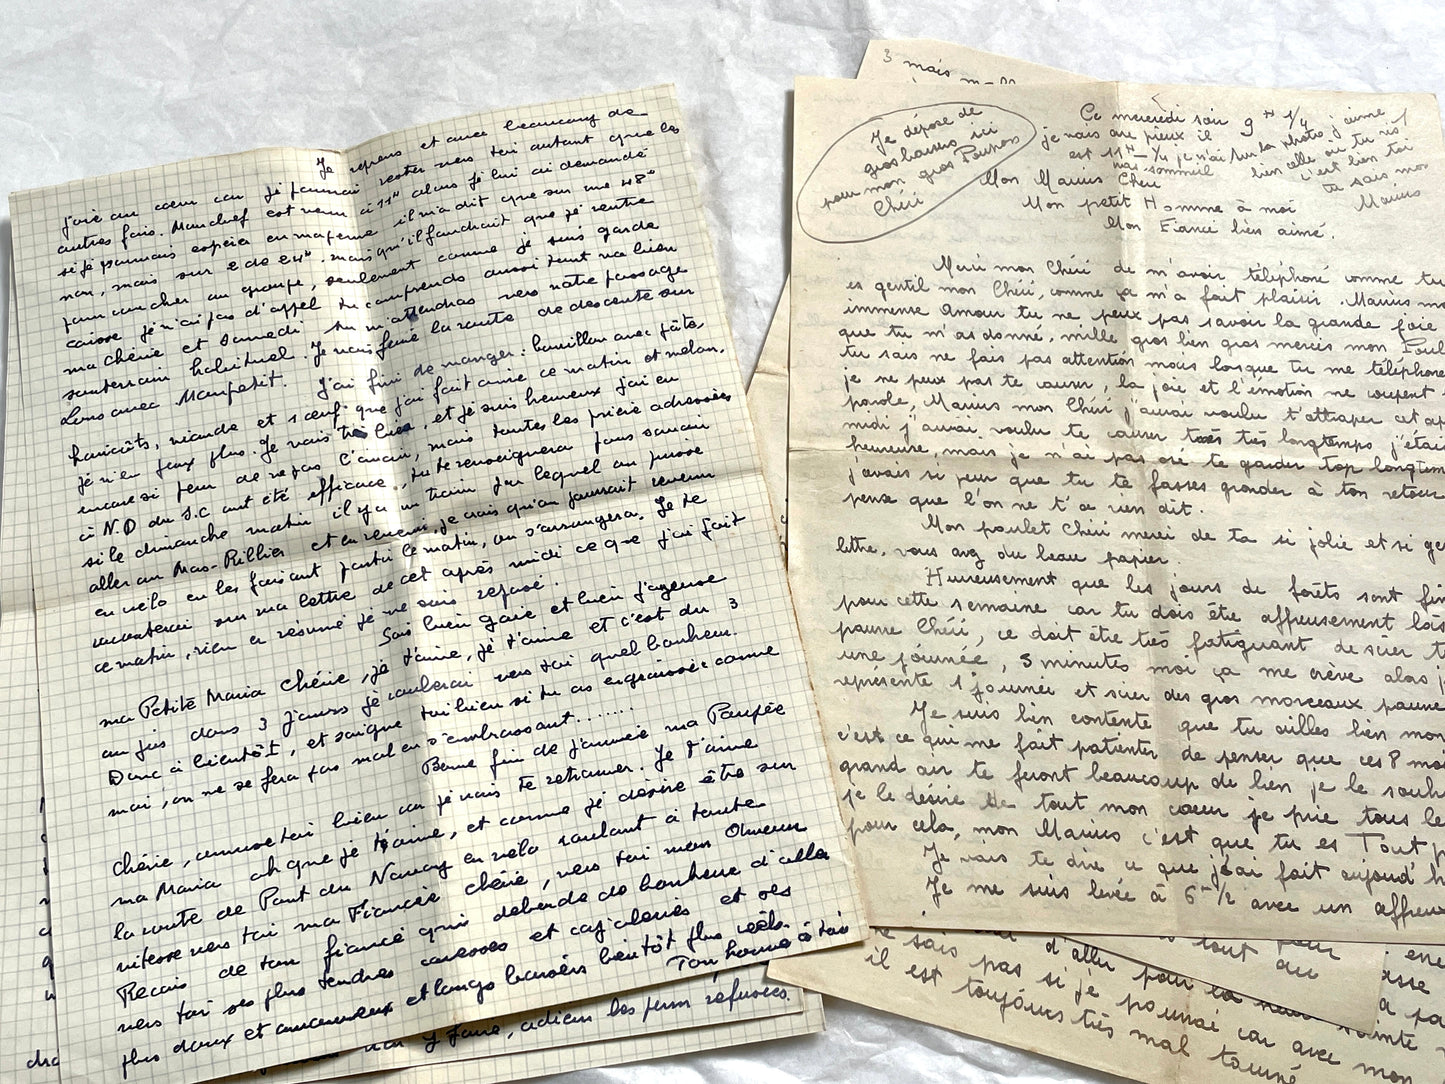 Je reprens et avec beaucoup de
joie au cœur car je pourrai rester vers toi autant que les
autres fois. Manchef est venu à 11H alors je lui ai demandé
si je pouvais espérer en ma perme il m'a dit que sur une 48H
non, mais sur 2 de 24H. mais qu'il faudrait que je rentre
pour coucher au groupe, seulement comme je suis garde
caisse je n'ai pas d'appel tu comprends aussi tout va bien
ma chérie et Samedi tu m'attendras vers notre passage
souterrain habituel. Je vais faire la route de descente sur
Lons avec Manpetit.
J'ai fini de manger: bouillon avec pâtes,
haricots, viande et 1 œuf que j'ai fait cuire ce matin et melon,
je n'en peux plus. Je vais très bien, et je suis heureux j'ai eu
encore si peur de ne pas mais toutes les prière adressées
à N.D du S.C ont été efficace, tu te renseignera pour savoir
si le dimanche matin il y a un train par lequel on puisse
aller au Mas-Rillier et en revenir, je crois qu'on pourrait revenir
en vélo en les faisant partir le matin, on s'arrangera. Je te
raconterai sur ma lettre de cet après midi ce que j'ai fait
ce matin, rien en résumé je me suis reposé.
Sois bien gaie et bien joyeuse
ma Petite Maria Chérie, je t'aime, je t'aime et c'est du 3
au jus dans 3 jours je roulerai vers toi quel bonheur.
Donc à bientôt, et soigne toi bien si tu as engraissée comme
moi, on ne se fera pas mal en s'embrassant.......
Bonne fin de journée ma Poupée
Chérie, amuse toi bien car je vais te retrouver. Je t'aime
ma Maria oh que je t'aime, et comme je désire être sur
la route de Pont du Navoy en vélo roulant à toute
vitesse vers toi ma Fiancée chérie, vers toi mon Amour
Reçois de ton fiancé qui déborde de bonheur d'aller
vers toi ses plus tendres caresses et cajoleries et ses
plus doux et amoureux et longs baisers bientôt plus réels.
Ton homme à toi
y faire, adieu les perm refusées.
3 mais
Je dépose de
gros baisers ici
pour mon gros Poupon
Chéri
Ce mercredi soir 9H 1/4 j'aime
je vais au pieux il
est 11H - 1/4 je n'ai
pas sommeil
sur la photo
bien celle où tu ris
c'est bien toi
tu sais mon
Marius
Mon Marius Chéri
Mon petit Homme à moi
Mon Fiancé bien aimé.
Merci mon Chéri de m'avoir téléphoné comme tu
es gentil mon Chéri, comme ça m'a fait plaisir. Marius mo
immense Amour tu ne peux pas savoir la grande joie
que tu m'as donné, mille gros bien gros mercis mon Poul
tu sais ne fais pas attention mais lorsque tu me téléphone
je ne peux pas te causer, la joie et l'émotion me coupent
parole, Marius mon Chéri j'aurai voulu t'attraper cet ap
midi j'aurai voulu te causer très très longtemps j'étai
heureuse, mais je n'ai pas osé te garder trop longtem
j'avais si peur que tu te fasses gronder à ton retour
pense que l'on ne t'a rien dit.
Mon poulet Chéri merci de ta si jolie et si gen
lettre, vous avez du beau papier.
Heureusement que les jours de forêts sont fin
pour cette semaine car tu dois être affreusement lás
pauvre Chéri, ce doit être très fatiguant de scier t
une journée, 5 minutes moi ça me crève alors j
représente 1 journée et scier des gros morceaux pauvre
Je suis bien contente que tu ailles bien mon
c'est ce qui me fait patienter de penser que ces 8 moi
grand air te feront beaucoup de bien je le souh
je le désire de tout mon cœur je prie tous le
pour cela, mon Marius c'est que tu es Tout p
Je vais te dire ce que j'ai fait aujourd'h
Je me suis levée à 6H 1/2 avec un affreu
tout au
d'aller pour la
ne sais pas si je pourrai car avec mon
il est toujours très mal tourné